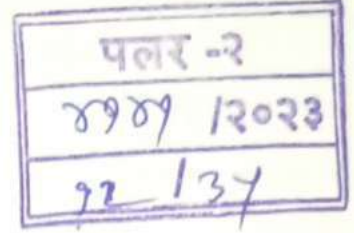 पलर -२
४१४१ /२०२३
१२ /३५